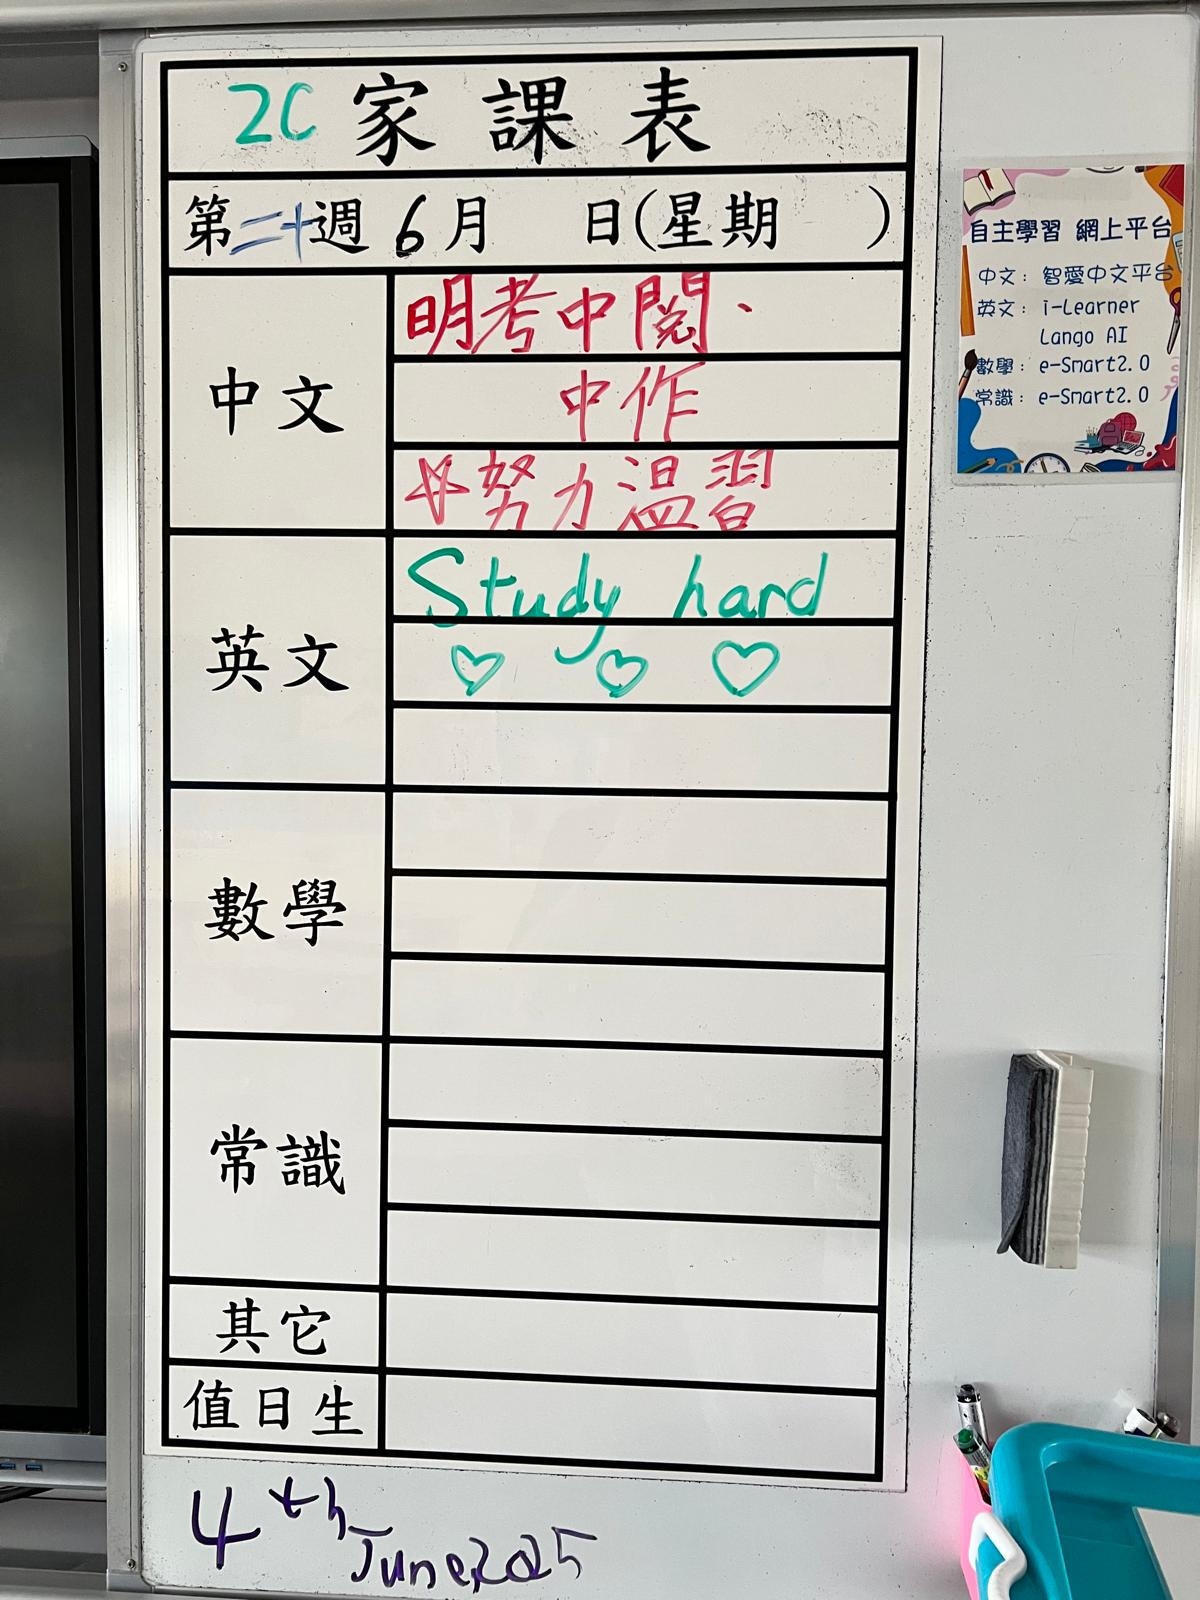 2C 家課表
第二十週 6月 日(星期 )
中文
明考中閱、
中作
☆努力温習
英文
Study hard
♡ ♡ ♡
數學
常識
其它
值日生
4th June, 2025
自主學習 網上平台
中文：智愛中文平台
英文：i-Learner
Lango AI
數學：e-Smart2.0
常識：e-Smart2.0